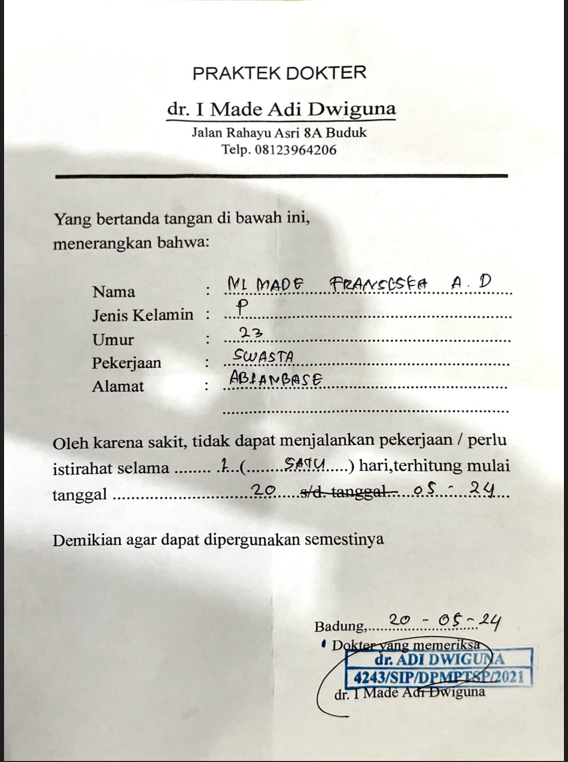 PRAKTEK DOKTER
dr. I Made Adi Dwiguna
Jalan Rahayu Asri 8A Buduk
Telp. 08123964206
Yang bertanda tangan di bawah ini,
menerangkan bahwa:
Nama : NI MADE A. D
Jenis Kelamin : P
Umur : 23
Pekerjaan : SWASTA
Alamat : ABIANBASE
Oleh karena sakit, tidak dapat menjalankan pekerjaan / perlu
istirahat selama ........ 1 (........SATU.....) hari,terhitung mulai
tanggal ........ 20 ..... s/d. tanggal... 05 - 24
Demikian agar dapat dipergunakan semestinya
Badung, 20 - 05 - 24
Dokter yang memeriksa
dr. ADI DWIGUNA
4243/SIP/DPMPTSP/2021
dr. I Made Adi Dwiguna